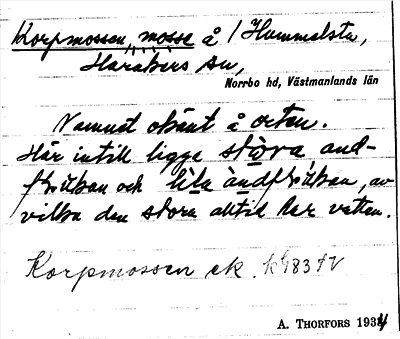 Korpmossen, mosse å / Hummelsta,
Harakers sn,
Norrbo hd, Västmanlands län
Namnet okänt å orten.
Här intill ligga stora and-
och lilla andfr, av
vilka den stora alltid har vatten.
Korpmossen ek.
A. THORFORS 1934